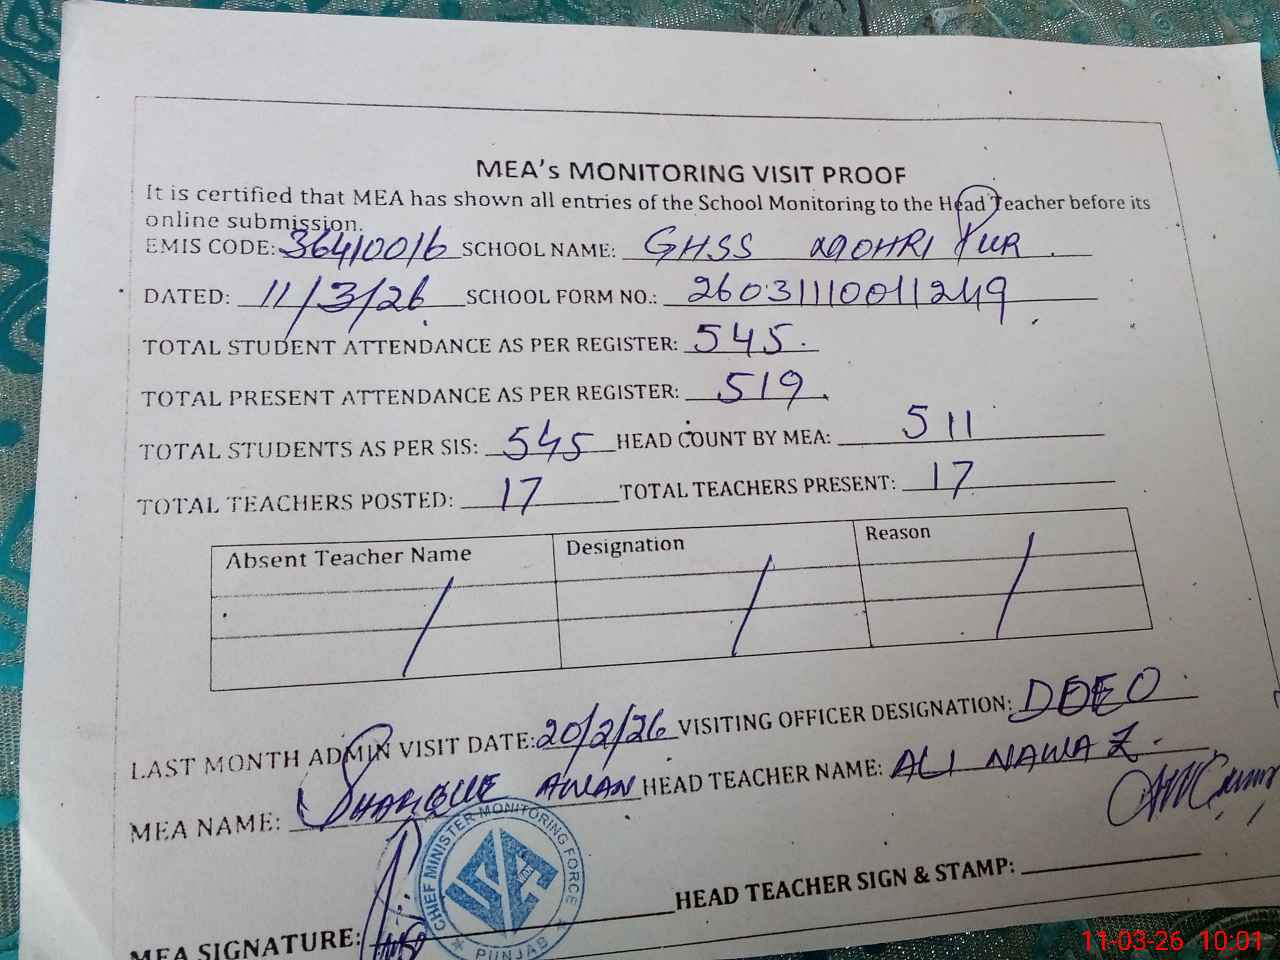 MEA's MONITORING VISIT PROOF
It is certified that MEA has shown all entries of the School Monitoring to the Head Teacher before its
online submission.
EMIS CODE: 36410016 SCHOOL NAME: GHSS MOHRI PUR
DATED: 11/3/26 SCHOOL FORM NO.: 26031110011249
TOTAL STUDENT ATTENDANCE AS PER REGISTER: 545.
TOTAL PRESENT ATTENDANCE AS PER REGISTER: 519
TOTAL STUDENTS AS PER SIS: 545 HEAD COUNT BY MEA: 511
TOTAL TEACHERS POSTED: 17 TOTAL TEACHERS PRESENT: 17
Absent Teacher Name Designation Reason
LAST MONTH ADMIN VISIT DATE: 20/2/26 VISITING OFFICER DESIGNATION: DDEO
MEA NAME: AWAN HEAD TEACHER NAME: ALI NAWAZ.
CHIEF MINISTER MONITORING FORCE
PUNJAB
MEA SIGNATURE: HEAD TEACHER SIGN & STAMP:
11-03-26 10:01